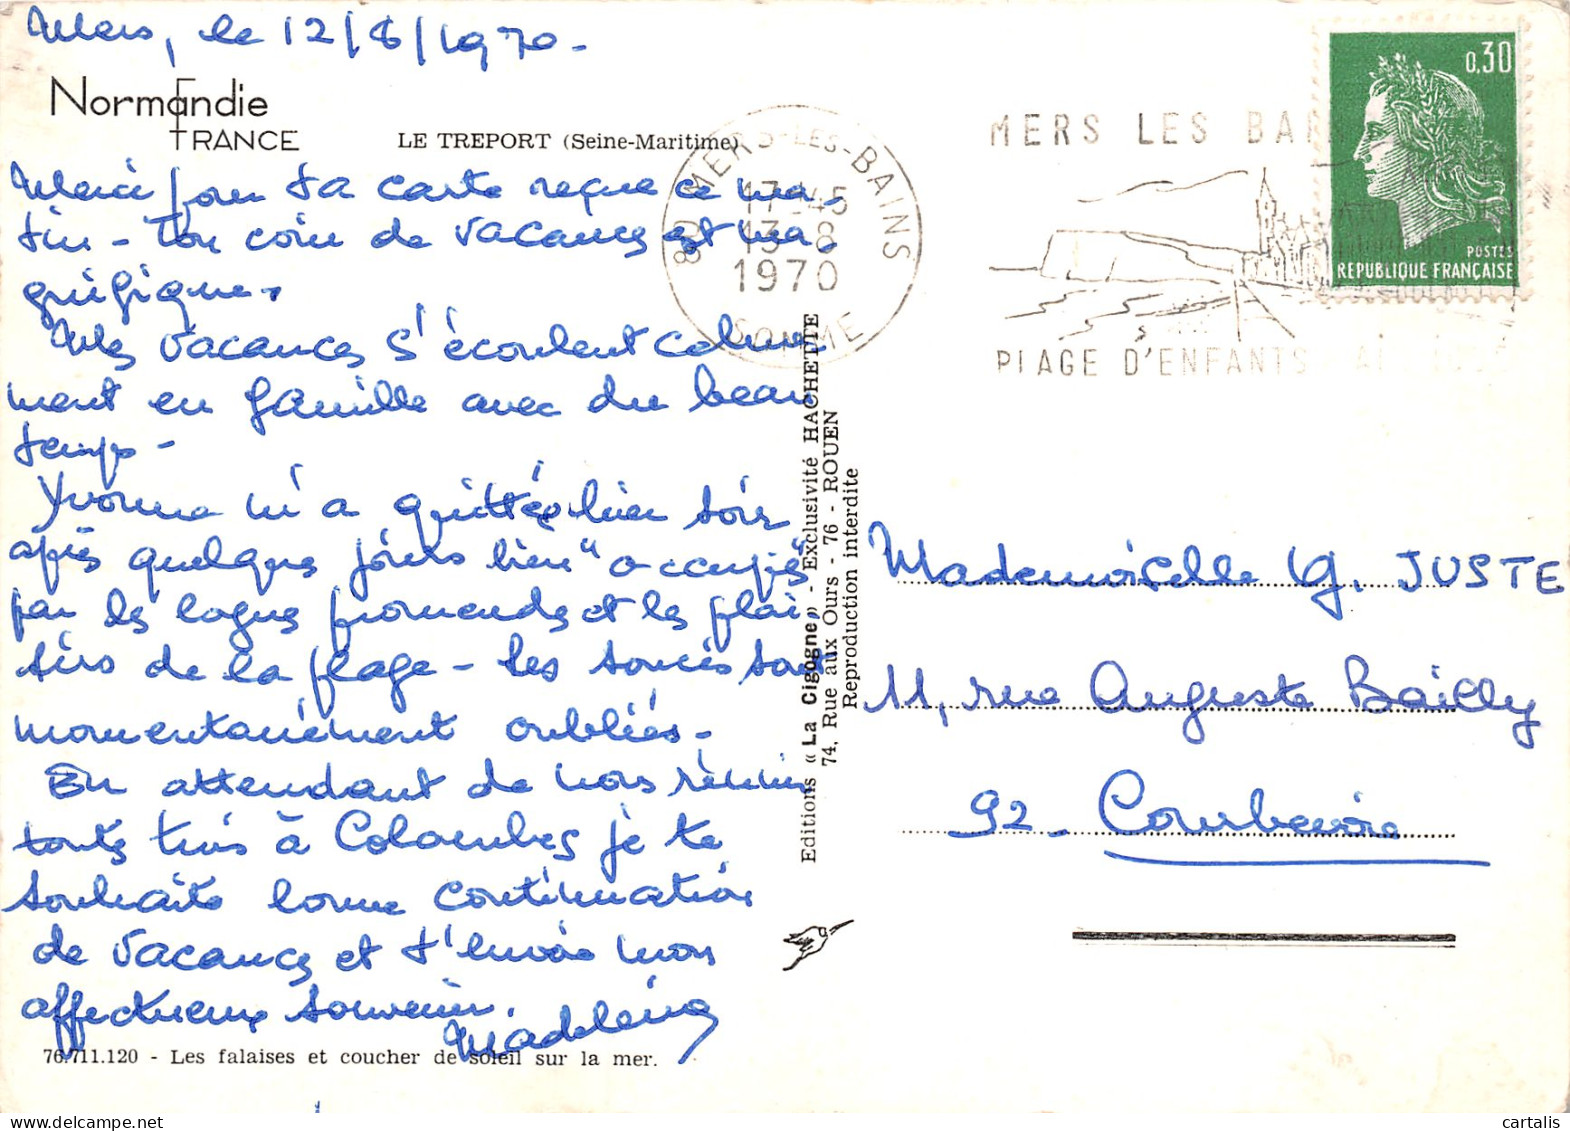 Mers, le 12/8/1970-
Normandie
FRANCE
LE TREPORT (Seine-Maritime)
Merci pour ta carte reçue ce ma-
tin - Ton coin de vacances est ma-
gnifique.
Mes vacances s'écoulent calme-
ment en famille avec du beau
temps -
Yvonne m'a quittée hier soir
après quelques jours bien "occupés"
par les longues promenades et les plai-
sirs de la plage - Les soucis sont
momentanément oubliés -
En attendant de nous réunir
toutes trois à Colombes je te
souhaite bonne continuation
de vacances et t'envoie mon
affectueux souvenir.
Madeleine
76.711.120 - Les falaises et coucher de soleil sur la mer.
80 MERS-LES-BAINS
17H45
13-8
1970
SOMME
MERS LES BAINS
PLAGE D'ENFANTS
0,30
POSTES
REPUBLIQUE FRANÇAISE
Editions « La Cigogne » - Exclusivité HACHETTE
74, Rue aux Ours - 76 - ROUEN
Reproduction interdite
Mademoiselle G. JUSTE
11, rue Auguste Bailly
92 - Courbevoie
cartalis